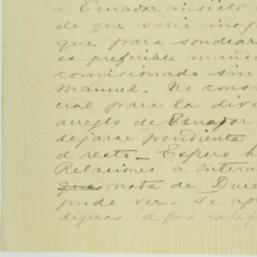 a Ecuador insisto
de que seria ino
que para sondear
es preferible mand
comisionado sin
Manuel. No cons
cial para la div
arreglo de Ecuador
dejarse pendiente
el resto_ Espero h
Relaciones a entera
que nota de Dure
pude ver. Se ap
dijeras a que